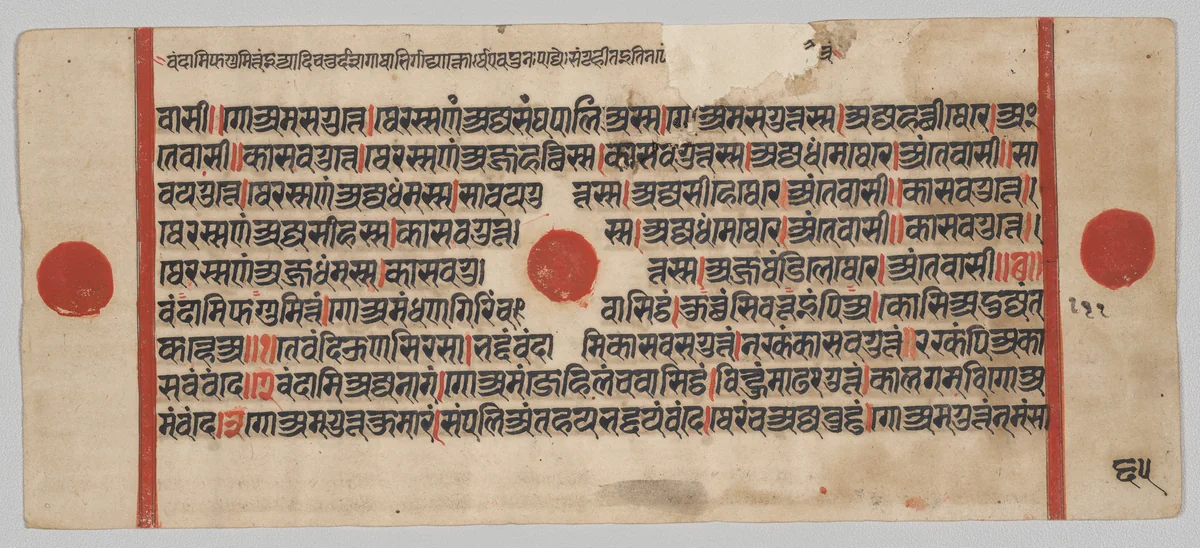 वंदामिफग्गुमित्तंइत्यादिचतुर्दशगाथाभिर्गद्योक्तोर्थएवपुनःपद्यैःसंगृहीतइतिन
वासी॥गोअमसगुत्ते।थेरस्सणंअज्जसंघपालिअस्स।गोअमसगुत्तस्स।अज्जहत्थीथेरे।अं
तेवासी॥कासवगुत्ते।थेरस्सणंअज्जहत्थिस्स।कासवगुत्तस्स।अज्जधंमेथेरे।अंतेवासी॥सा
वयगुत्ते।थेरस्सणंअज्जधंमस्स।सावयगुत्तस्स।अज्जसीहेथेरे।अंतेवासी॥कासवगुत्ते॥
थेरस्सणंअज्जसीहस्स।कासवगुत्तस्स।अज्जधंमेथेरे।अंतेवासी॥कासवगुत्ते॥
थेरस्सणंअज्जधंमस्स।कासवगुत्तस्स।अज्जसंडिलेथेरे।अंतेवासी॥छ॥
वंदामिफग्गुमित्तं।गोअमंधणगिरिंचवासिट्ठं।कुच्छंसिवभूइंपिअ।कोसिअदुज्जंत
कण्हेअ॥१॥तेवंदिऊणसिरसा।भद्दंवंदामिकासवसगुत्तं।नक्खंकासवगुत्तं॥रक्खंपिअका
सवंवंदे॥२वंदामिअज्जनागं।गोअमंजेहिलंचवासिट्ठं।विण्हुंमाढरगुत्तं।कालगमविगोअ
मंवंदे।३गोअमगुत्तकुमारं।संपलिअंतहयभद्दयंवंदे।थेरंचअज्जवुड्ढं।गोअमगुत्तंनमंसा
१११
६५